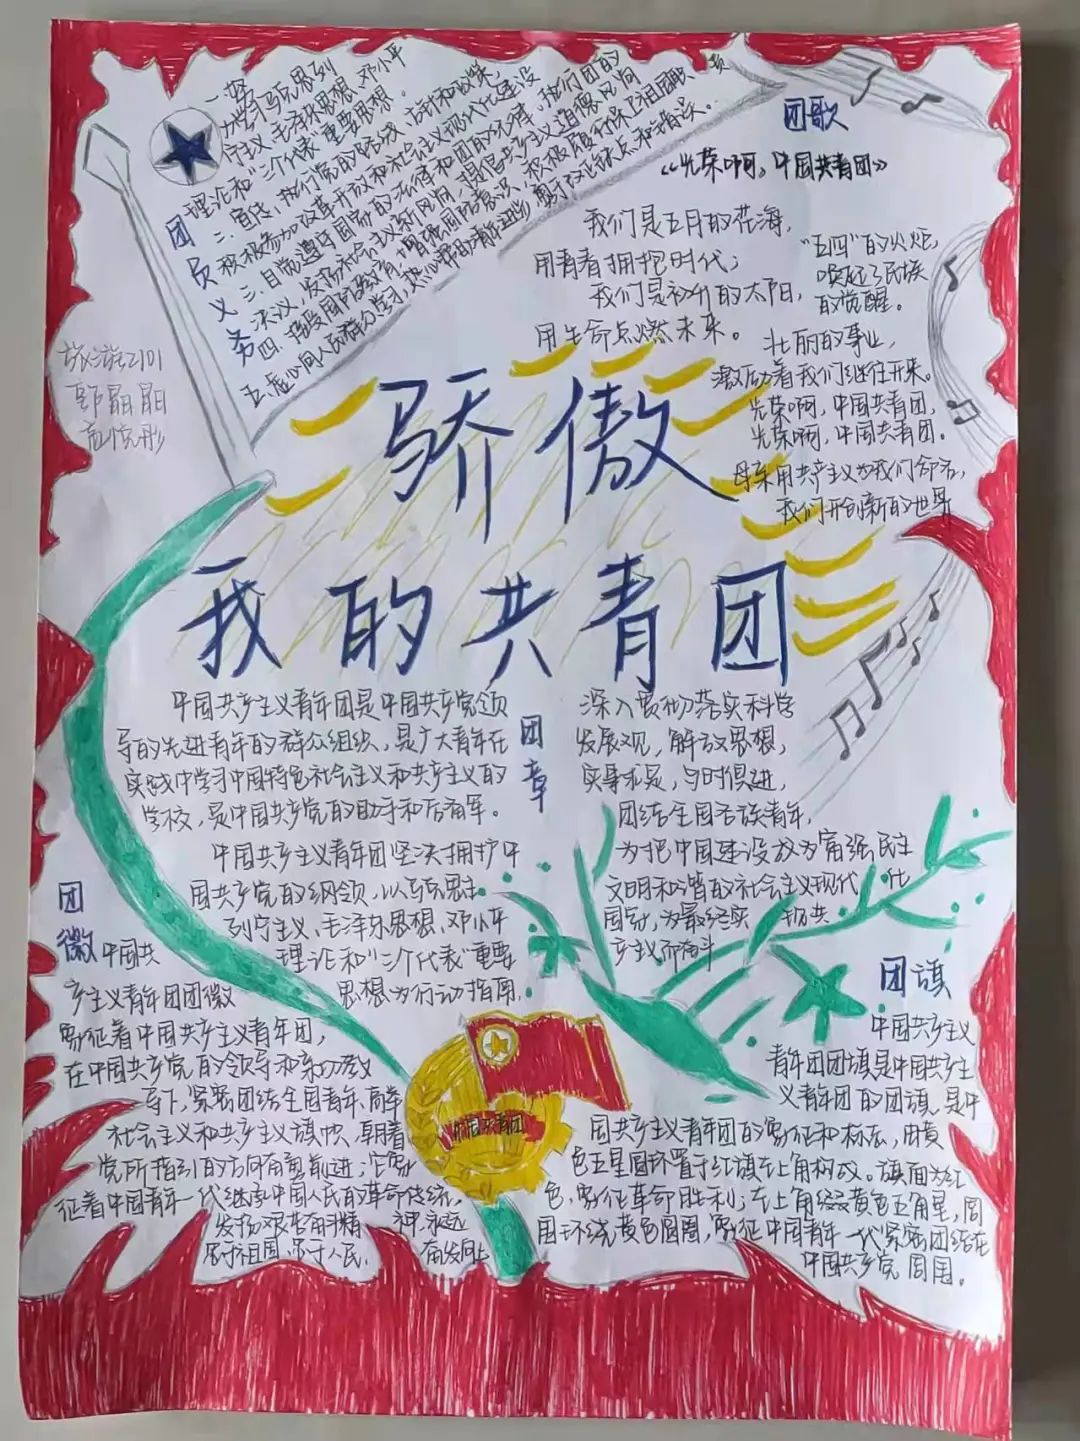 团员义务
一.努
力学习马克思列
宁主义、毛泽东思想、邓小平
理论和“三个代表”重要思想.
二.宣传、执行党的路线、方针和政策
积极参加改革开放和社会主义现代化建设
三.自觉遵守国家的法律和团的纪律,执行团的
决议,发扬社会主义新风尚,提倡共产主义道德
四.接受国防教育,增强国防意识,积极履行保卫祖国职责
五.虚心向人民群众学习,热心帮助青年进步
旅游2101
团歌
《光荣啊,中国共青团》
我们是五月的花海,
用青春拥抱时代;
我们是初升的太阳,
用生命点燃未来。
“五四”的火炬,
唤起了民族
的觉醒。
壮丽的事业,
激励着我们继往开来。
光荣啊,中国共青团,
光荣啊,中国共青团。
母亲用共产主义为我们命名,
我们开创新的世界
骄傲
我的共青团
团章
中国共产主义青年团是中国共产党领
导的先进青年的群众组织,是广大青年在
实践中学习中国特色社会主义和共产主义的
学校,是中国共产党的助手和后备军。
中国共产主义青年团坚决拥护中
国共产党的纲领,以马克思主
列宁主义、毛泽东思想、邓小平
理论和“三个代表”重要
思想为行动指南,
深入贯彻落实科学
发展观,解放思想,
实事求是,与时俱进,
团结全国各族青年,
为把中国建设成为富强民主
文明和谐的社会主义现代化
国家,为最终实现共
产主义而奋斗
团徽
中国共
产主义青年团团徽
象征着中国共产主义青年团,
在中国共产党的领导和亲切教
导下,紧密团结全国青年、高举
社会主义和共产主义旗帜,朝着
党所指引的方向奋勇前进;它象
征着中国青年一代继承中国人民的革命传统,
发扬艰苦奋斗精神永远
忠于祖国、忠于人民,奋发向上
团旗
中国共产主义
青年团团旗是中国共产主
义青年团的团旗,是中
国共产主义青年团的象征和标志,由黄
色五星圆环置于红旗左上角构成。旗面为红
色,象征革命胜利;左上角缀黄色五角星,周
围环绕黄色圆圈,象征中国青年一代紧密团结在
中国共产党周围。